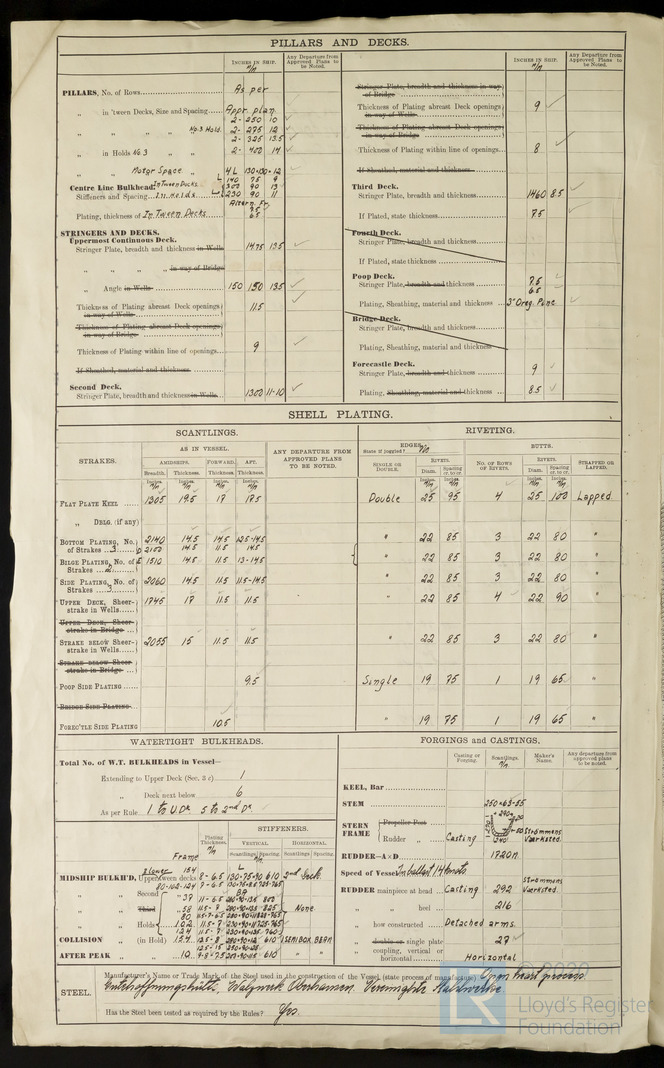 PILLARS AND DECKS.
INCHES IN SHIP.
Any Departure from Approved Plans to be Noted.
PILLARS, No. of Rows
As per
„ in 'tween Decks, Size and Spacing
Appr plan
2- 250 10
„ „ „ „ No 3 Hold.
2- 275 12
2- 325 13.5
„ in Holds No 3 „
2- 400 14
„ „ Motor Space „
4 L 130·130·12
L 140 75 9
Centre Line Bulkhead. In Tween Decks
300 90 13
Stiffeners and Spacing In Holds
230 90 11
Altern. Fr.
Plating, thickness of In Tween Decks
6.5
STRINGERS AND DECKS.
Uppermost Continuous Deck.
Stringer Plate, breadth and thickness in Wells
1475 13.5
„ „ „ „ in way of Bridge
„ Angle in Wells
150 150 13.5
Thickness of Plating abreast Deck openings in way of Wells
11.5
Thickness of Plating abreast Deck openings in way of Bridge
Thickness of Plating within line of openings
9
If Sheathed, material and thickness
Second Deck.
Stringer Plate, breadth and thickness in Wells
1300 11-10
INCHES IN SHIP.
Any Departure from Approved Plans to be Noted.
Stringer Plate, breadth and thickness in way of Bridge
Thickness of Plating abreast Deck openings in way of Wells
9
Thickness of Plating abreast Deck openings in way of Bridge
Thickness of Plating within line of openings
8
If Sheathed, material and thickness
Third Deck.
Stringer Plate, breadth and thickness
1460 8.5
If Plated, state thickness
7.5
Fourth Deck.
Stringer Plate, breadth and thickness
If Plated, state thickness
Poop Deck.
Stringer Plate, breadth and thickness
7.5
6.5
Plating, Sheathing, material and thickness
3" Oreg. Pine
Bridge Deck.
Stringer Plate, breadth and thickness
Plating, Sheathing, material and thickness
Forecastle Deck.
Stringer Plate, breadth and thickness
9
Plating, Sheathing, material and thickness
8.5
SHELL PLATING.
SCANTLINGS.
RIVETING.
STRAKES.
AS IN VESSEL.
AMIDSHIPS. FORWARD. AFT.
Breadth. Thickness. Thickness. Thickness.
ANY DEPARTURE FROM APPROVED PLANS TO BE NOTED.
EDGES. No
State if joggled?
SINGLE OR DOUBLE.
RIVETS.
Diam. Spacing cr. to cr.
BUTTS.
NO. OF ROWS OF RIVETS.
RIVETS.
Diam. Spacing cr. to cr.
STRAPPED OR LAPPED.
FLAT PLATE KEEL 1305 19.5 17 17.5 Double 25 95 4 25 100 Lapped
„ DBLG. (if any)
BOTTOM PLATING, No. of Strakes 3 2140 14.5 14.5 12.5-14.5 " 22 85 3 22 80 "
2100 14.5 11.5 14.5
BILGE PLATING, No. of Strakes 2 1510 14.5 11.5 13-14.5 " 22 85 3 22 80 "
SIDE PLATING, No. of Strakes 3 2060 14.5 11.5 11.5-14.5 " 22 85 3 22 80 "
UPPER DECK, Sheer-strake in Wells 1745 17 11.5 11.5 " 22 85 4 22 90 "
UPPER DECK, Sheer-strake in Bridge
STRAKE BELOW Sheer-strake in Wells 2055 15 11.5 11.5 " 22 85 3 22 80 "
STRAKE BELOW Sheer-strake in Bridge
POOP SIDE PLATING 9.5 Single 19 75 1 19 65 "
BRIDGE SIDE PLATING
FOREC'TLE SIDE PLATING 10.5 " 19 75 1 19 65 "
WATERTIGHT BULKHEADS.
Total No. of W.T. BULKHEADS in Vessel—
Extending to Upper Deck (Sec. 3 c) 1
„ Deck next below 6
As per Rule 1 to U.Dk 5 to 2nd Dk
Plating Thickness.
STIFFENERS.
VERTICAL HORIZONTAL
Scantlings Spacing. Scantlings Spacing.
Frame
MIDSHIP BULKH'D, Upper 'tween decks 8-6.5 130·75·90 610 2nd Deck
80-102-124 7-6.5
„ „ Second „ 37 11-6.5
„ „ Third „ 58 11.5-7 825 None
„ „ Holds
102 11.5-7
124 11.5-7
COLLISION „ (in Hold) 610 1 SEMI BOX BEAM
AFTER PEAK „ 10 9-8-7.5 610 "
FORGINGS and CASTINGS.
Casting or Forging. Scantlings. Maker's Name. Any departure from approved plans to be noted.
KEEL, Bar
STEM
STERN FRAME
Propeller Post
Rudder „
Casting
Strømmens Værksted.
RUDDER—A×D
Speed of Vessel In ballast 14 knots
RUDDER mainpiece at head Casting 292 Strømmens Værksted.
„ „ heel 216
„ how constructed Detached arms.
„ double or single plate 27
„ coupling, vertical or horizontal Horizontal
STEEL.
Manufacturer's Name or Trade Mark of the Steel used in the construction of the Vessel (state process of manufacture) Open heart process.
Gutehoffnungshütte, Walzwerk Oberhausen. Vereinigte Stahlwerke
Has the Steel been tested as required by the Rules? Yes.
© 2020
LR
Lloyd's Register
Foundation